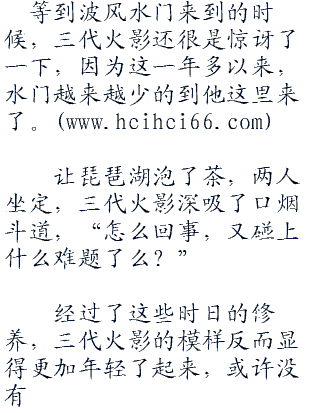 等到波风水门来到的时
候，三代火影还很是惊讶了
一下，因为这一年多以来，
水门越来越少的到他这里来
了。(www.hcihci66.com)
让琵琶湖泡了茶，两人
坐定，三代火影深吸了口烟
斗道，“怎么回事，又碰上
什么难题了么？”
经过了这些时日的修
养，三代火影的模样反而显
得更加年轻了起来，或许没
有